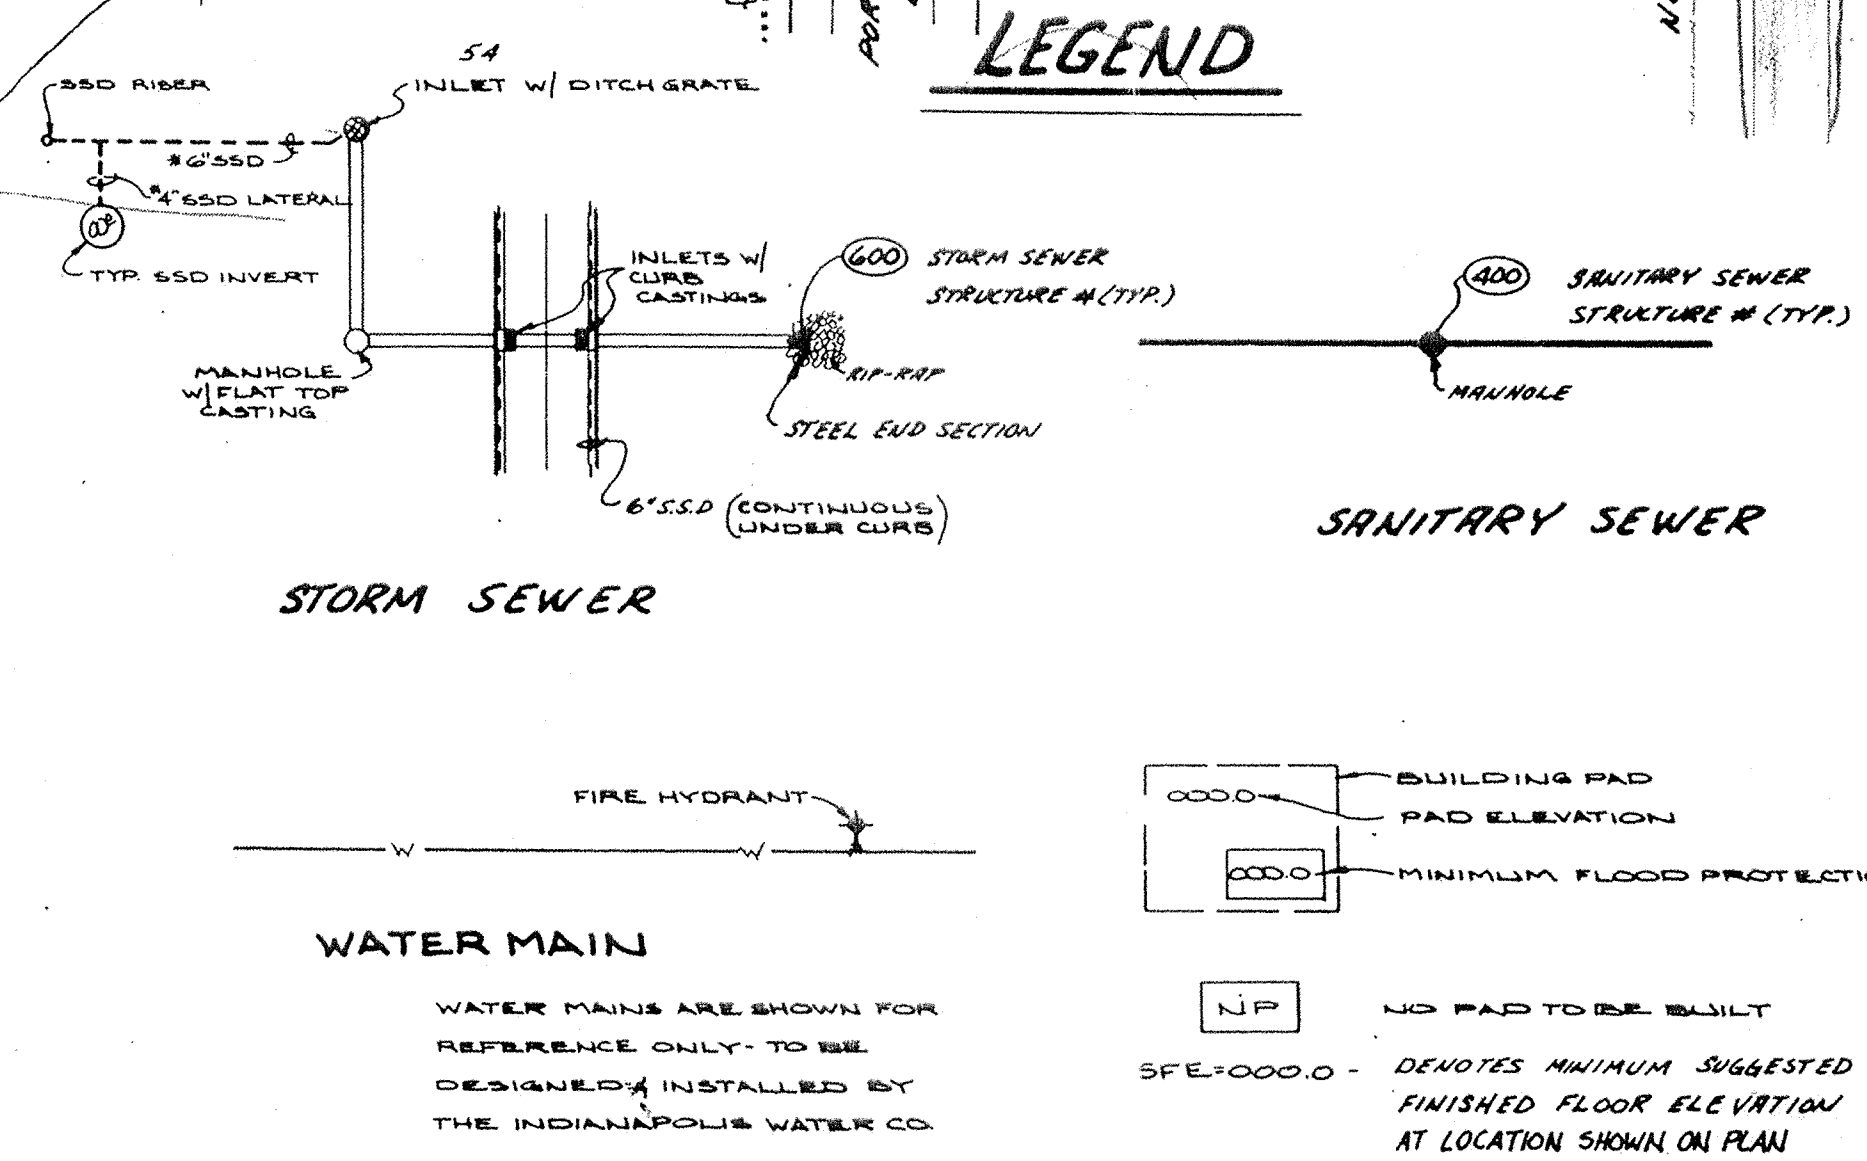 LEGEND
54
SSD RISER
INLET W/ DITCH GRATE
*6"SSD
*4"SSD LATERAL
TYP. SSD INVERT
INLETS W/
CURB
CASTINGS
600
STORM SEWER
STRUCTURE # (TYP.)
MANHOLE
W/FLAT TOP
CASTING
RIP-RAP
STEEL END SECTION
6" S.S.D (CONTINUOUS
UNDER CURB)
STORM SEWER
400
SANITARY SEWER
STRUCTURE # (TYP.)
MANHOLE
SANITARY SEWER
FIRE HYDRANT
W W
WATER MAIN
WATER MAINS ARE SHOWN FOR
REFERENCE ONLY- TO BE
DESIGNED & INSTALLED BY
THE INDIANAPOLIS WATER CO.
BUILDING PAD
000.0
PAD ELEVATION
000.0
MINIMUM FLOOD PROTECTI
NP
NO PAD TO BE BUILT
SFE=000.0 - DENOTES MINIMUM SUGGESTED
FINISHED FLOOR ELEVATION
AT LOCATION SHOWN ON PLAN